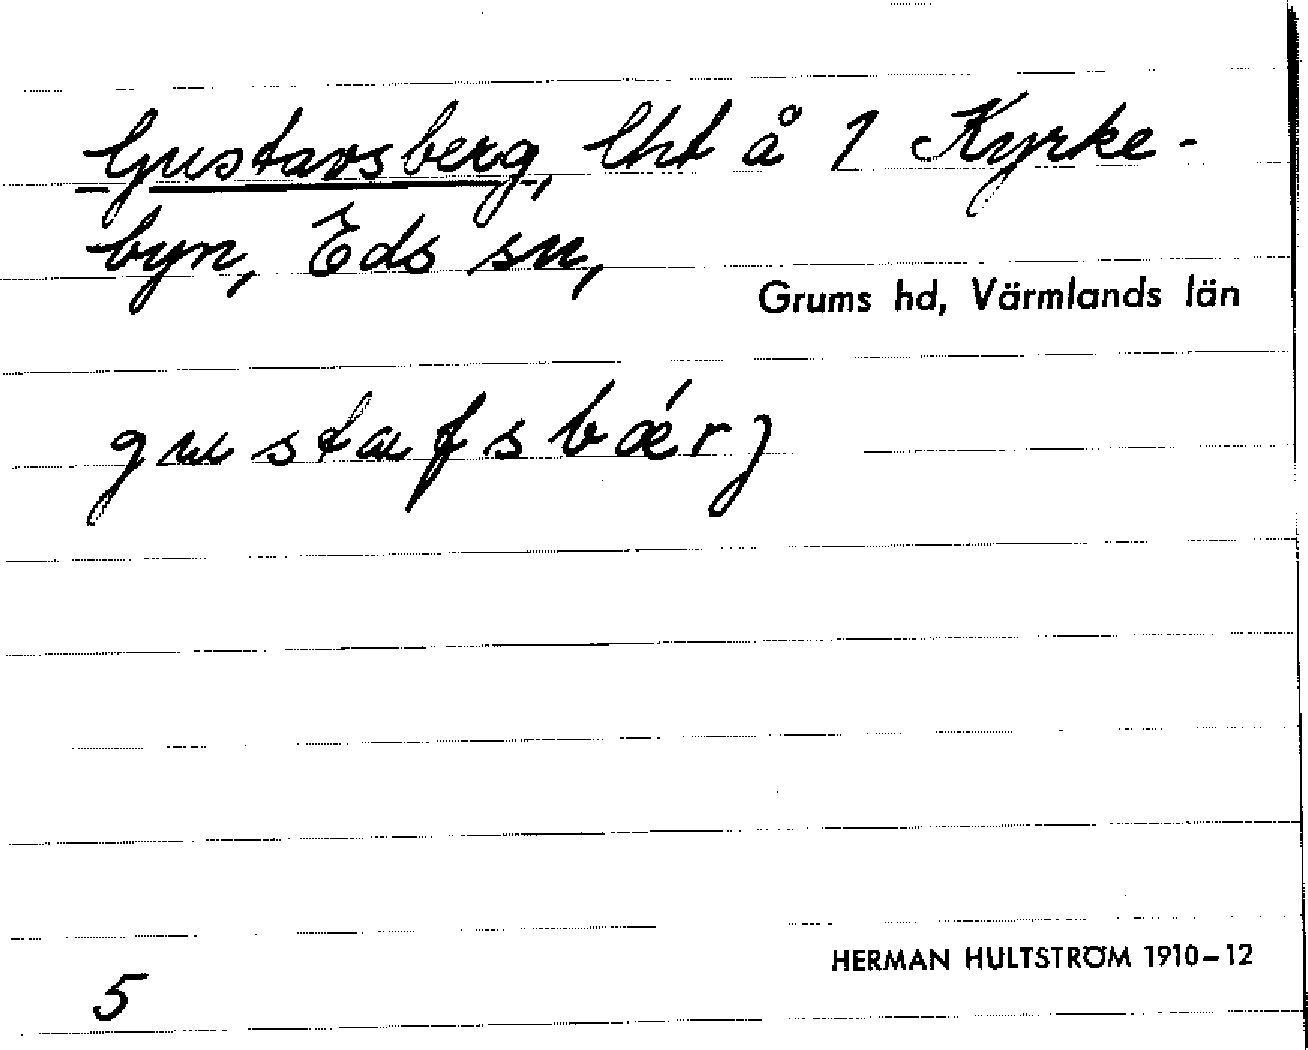 Gustavsberg, lht å 1 Kyrke-
byn, Eds sn,
Grums hd, Värmlands län
gustafsbǽrj
HERMAN HULTSTRÖM 1910-12
5